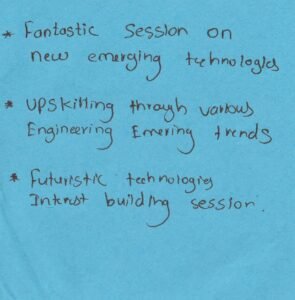 * Fantastic Session on
new emerging technologies
* Upskilling through various
Engineering Emering trends
* Futuristic technologies
Interest building session.